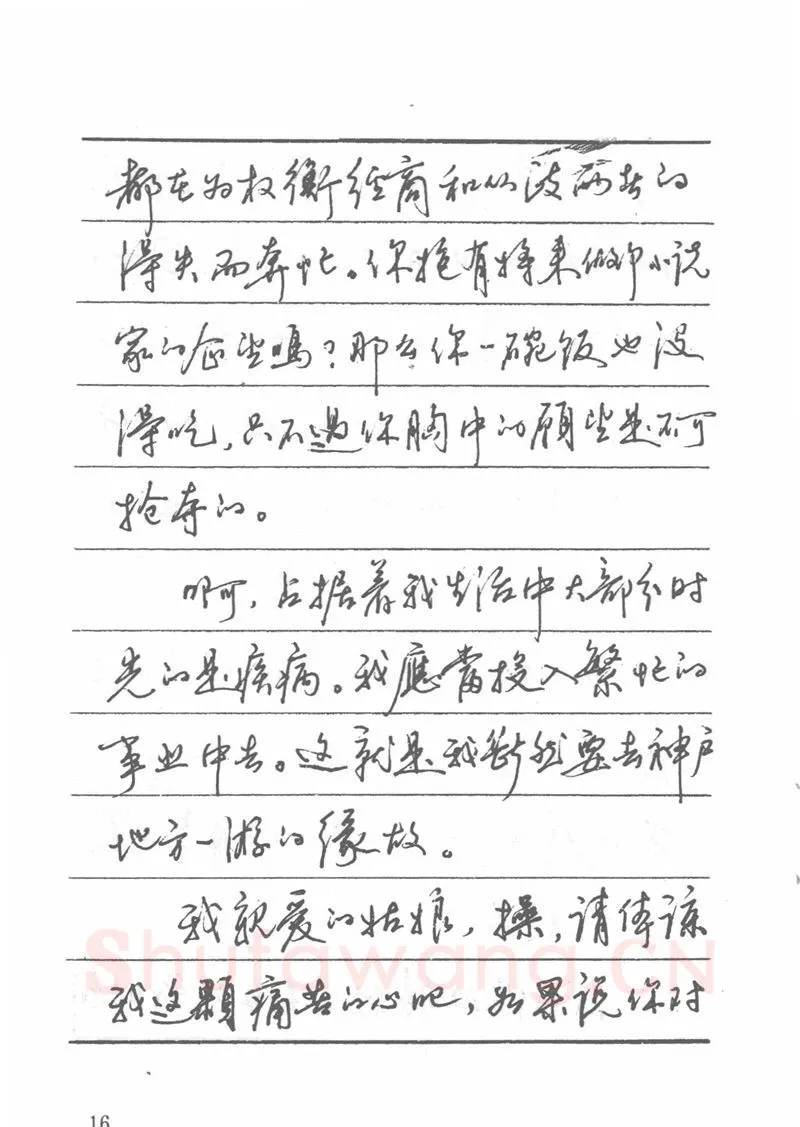 都在为权衡经商和从波两者的
得失而奔忙。你抱有将来做印小说
家的企望吗？那么你一碗饭也没
得吃，只不过你胸中的愿望是不可
抢夺的。
啊，占据着我生活中大部分时
光的是疾病。我應當投入繁忙的
事业中去。这就是我断然要去神户
地方一游的缘故。
我親爱的姑娘，操，请体谅
我这颗痛苦的心吧，如果说你对
Shufawang.CN
16